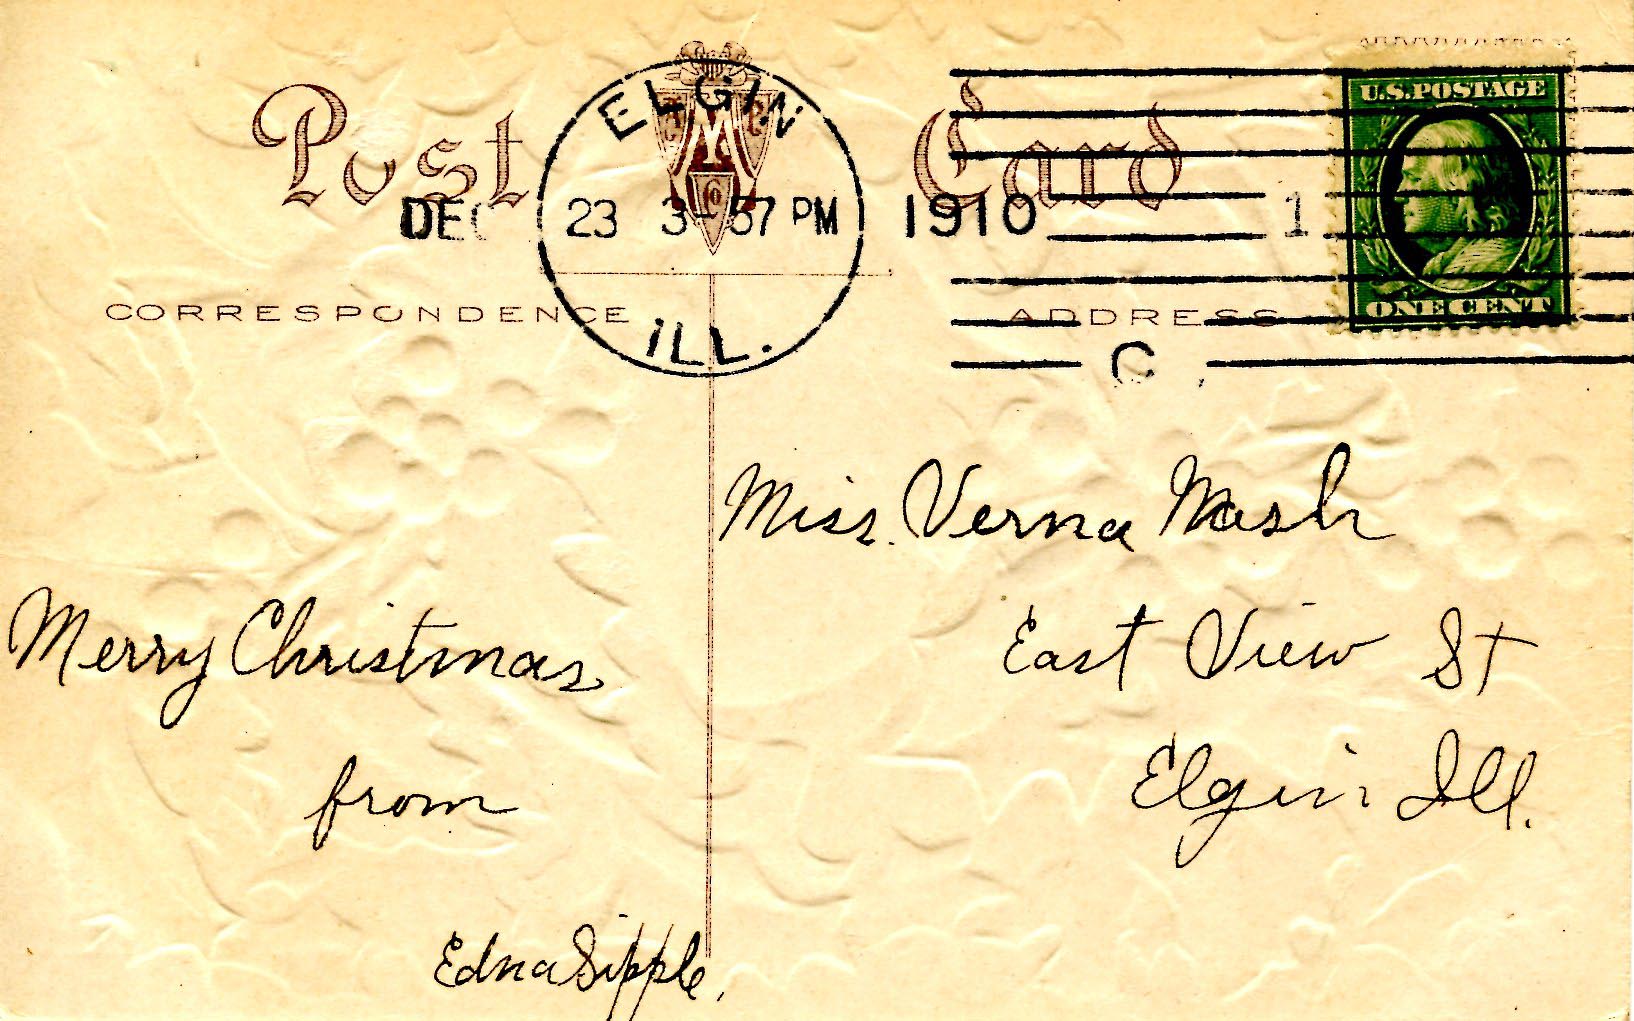 Post Card
ELGIN
DEC 23 3-57 PM 1910 1
ILL.
U.S.POSTAGE
ONE CENT
M
Co
CORRESPONDENCE
ADDRESS
C
Miss. Verna Nash
East View St
Elgin Ill.
Merry Christmas
from
Edna Sipple,